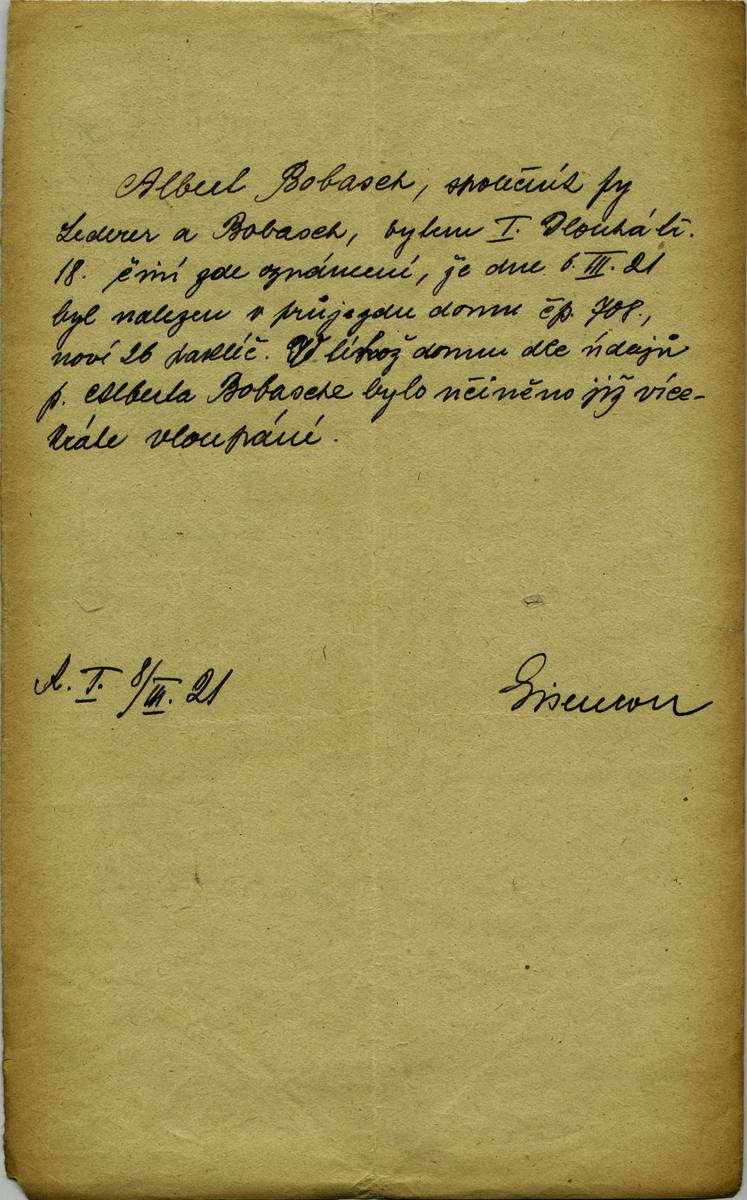 Albert Bobasch, společník fy
Lederer a Bobasch, bytem I. Dlouhá tř.
18. činí zde oznámení, že dne 6. III. 21
byl nalezen v průjezdu domu čp. 708.,
noví 26 paklíč. V témž domu dle údajů
p. Alberta Bobasche bylo učiněno již více-
kráte vloupání.
A. I. 8/III. 21